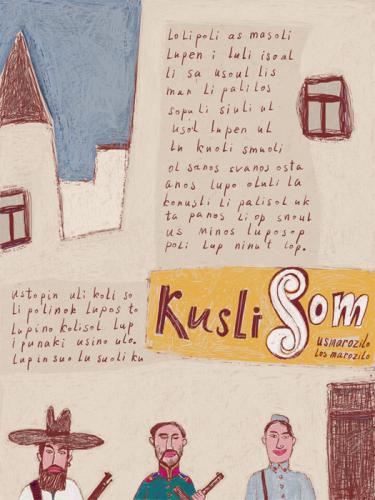 Lolipoli as masoli
Lupen i luli isoal
li sa usoul lis
man li palilos
sopuli siuli ul
usol lupen ul
lu knoli smuoli
ol sanos svanos osta
anos lupo oluli la
konusli li palisol uk
ta panos li op snoul
us minos luposop
poli lup ninut lop.
ustopin uli koli so
li polinok lupos to
Lupino kolisol lup
i punaki usino ulo.
Lupin suo lu suoli ku
Kusli Som
usmarozilo
los marozilo